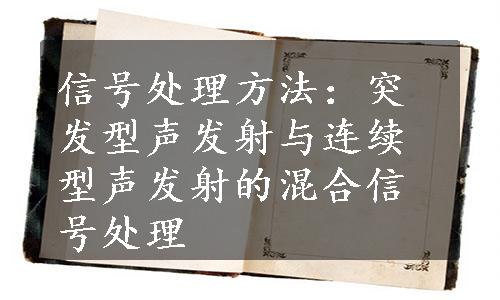 信号处理方法：突
发型声发射与连续
型声发射的混合信
号处理